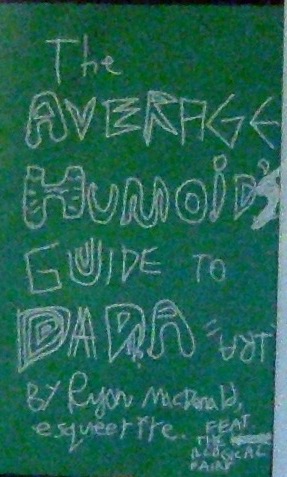 The
AVERAGE
HUMOID'S
GUIDE TO
DADA "ART"
BY Ryon McDonald,
esqueerire.
FEAT.
THE
ILLOGICAL
FAIRY